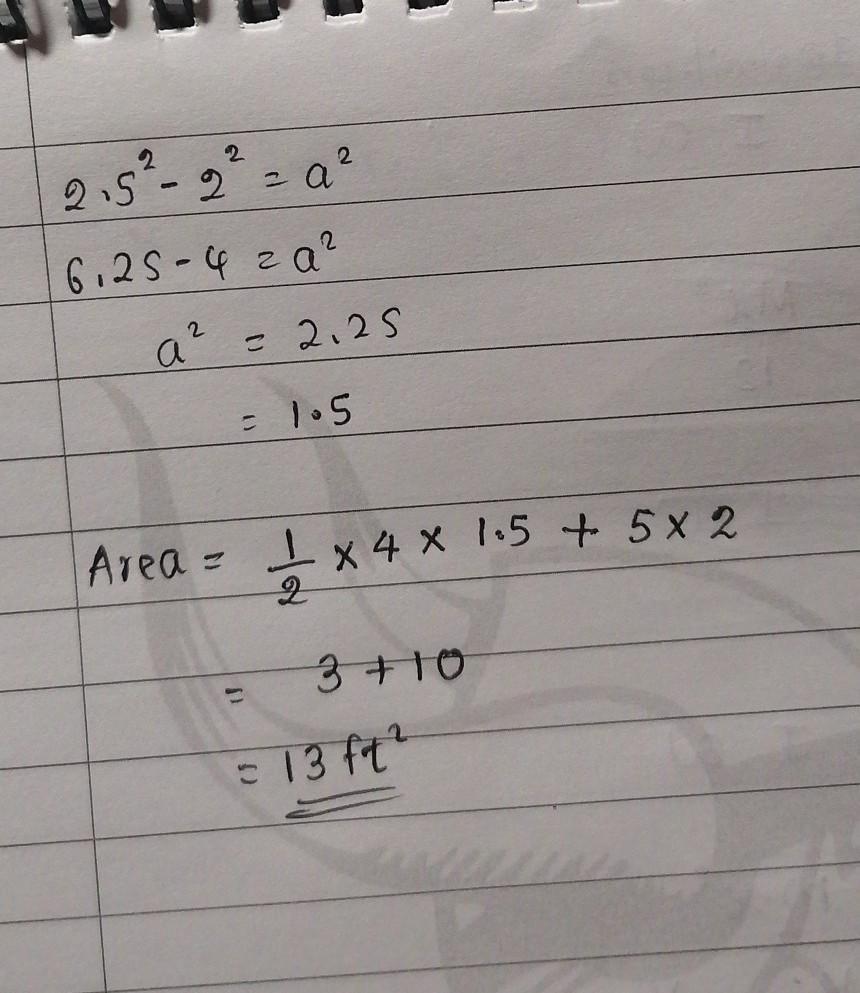 2.5² - 2² = a²
6.25 - 4 = a²
a² = 2.25
= 1.5
Area = 1/2 × 4 × 1.5 + 5 × 2
= 3 + 10
= 13 ft²